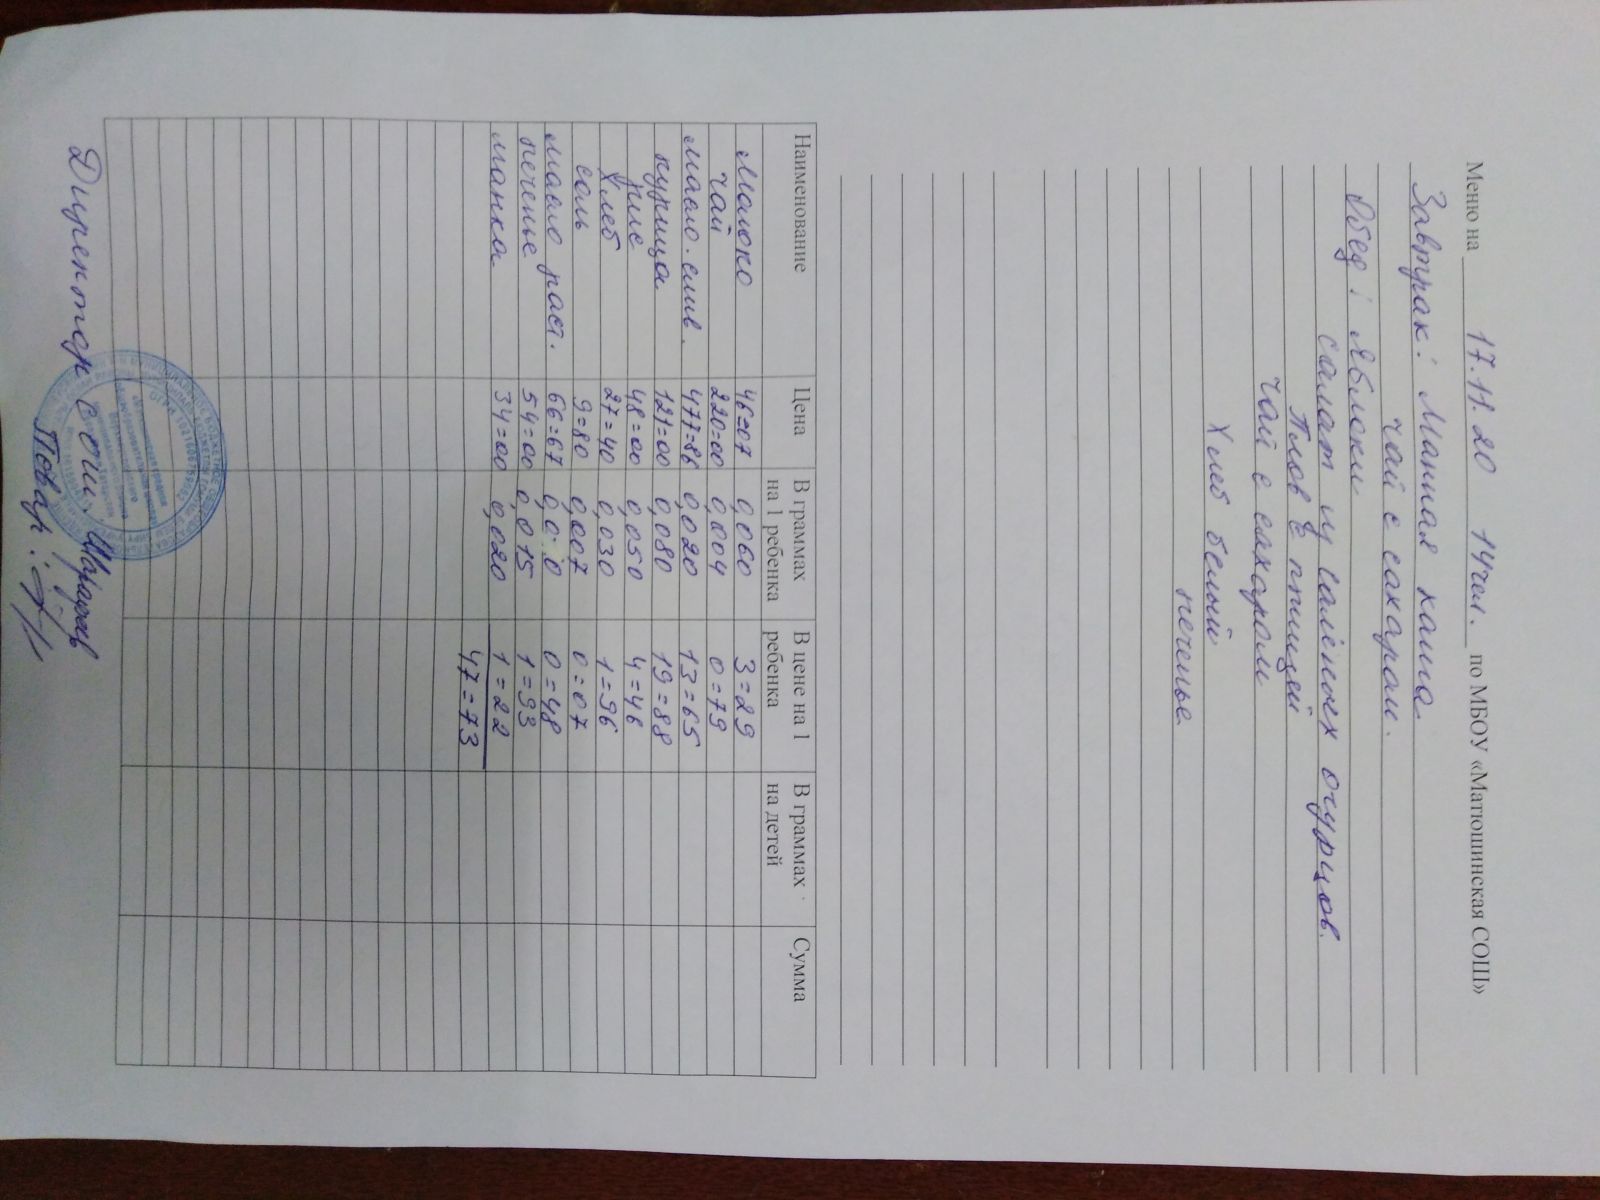 Меню на 17.11.20 14чел. по МБОУ «Матюшинская СОШ»
Завтрак: Манная каша
чай с сахаром.
Обед: Яблоки
салат из солёных огурцов.
Плов с птицей
чай с сахаром
Хлеб белый
печенье
Наименование Цена В граммах на 1 ребенка В цене на 1 ребенка В граммах на детей Сумма
молоко 46=07 0,060 3=29
чай 220=00 0,004 0=79
масло. слив. 477=86 0,020 13=65
курица 121=00 0,080 19=88
рис 48=00 0,050 4=46
Хлеб 27=40 0,030 1=96
соль 9=80 0,007 0=07
масло раст. 66=67 0=48
печенье 54=00 0,015 1=93
манка 34=00 0,020 1=22
47=73
Директор сош.
Повар: